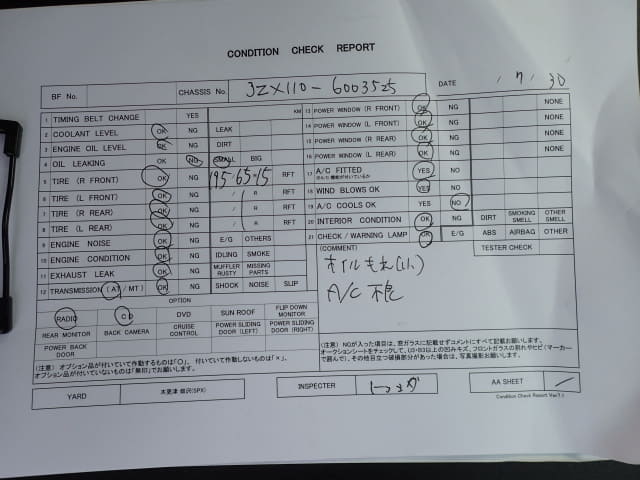 CONDITION CHECK REPORT
BF No. CHASSIS No. JZX110-6003525 DATE / 7 / 30
1 TIMING BELT CHANGE YES KM
2 COOLANT LEVEL OK NG LEAK
3 ENGINE OIL LEVEL OK NG DIRT
4 OIL LEAKING OK NG SMALL BIG
5 TIRE (R FRONT) OK NG 195-65-15 RFT
6 TIRE (L FRONT) OK NG / R RFT
7 TIRE (R REAR) OK NG / R RFT
8 TIRE (L REAR) OK NG / R RFT
9 ENGINE NOISE OK NG E/G OTHERS
10 ENGINE CONDITION OK NG IDLING SMOKE
11 EXHAUST LEAK OK NG MUFFLER RUSTY MISSING PARTS
12 TRANSMISSION (AT / MT) OK NG SHOCK NOISE SLIP
OPTION
RADIO CD DVD SUN ROOF FLIP DOWN MONITOR
REAR MONITOR BACK CAMERA CRUISE CONTROL POWER SLIDING DOOR (LEFT) POWER SLIDING DOOR (RIGHT)
POWER BACK DOOR
(注意) オプション品が付いていて作動するものは「○」、付いていて作動しないものは「×」、
オプション品が付いていないものは「無印」でお願いします。
13 POWER WINDOW (R FRONT) OK NG NONE
14 POWER WINDOW (L FRONT) OK NG NONE
15 POWER WINDOW (R REAR) OK NG NONE
16 POWER WINDOW (L REAR) OK NG NONE
17 A/C FITTED YES NO
18 WIND BLOWS OK YES NO
19 A/C COOLS OK YES NO
20 INTERIOR CONDITION OK NG DIRT SMOKING SMELL OTHER SMELL
21 CHECK / WARNING LAMP OK E/G ABS AIRBAG OTHER
(COMMENT) TESTER CHECK
オイルもれ(小)
A/C 不良
(注意) NGが入った場合は、窓ガラスに記載せずコメントにすべて記載お願いします。
オークションシートをチェックして、(J5・B3)以上の凹みキズ、フロントガラスの割れやヒビ(マーカー
で囲んで)、その他目立つ破損部分があった場合は、写真撮影お願いします。
YARD 木更津 金沢(SPX) INSPECTER AA SHEET /
Condition Check Report Ver7.1